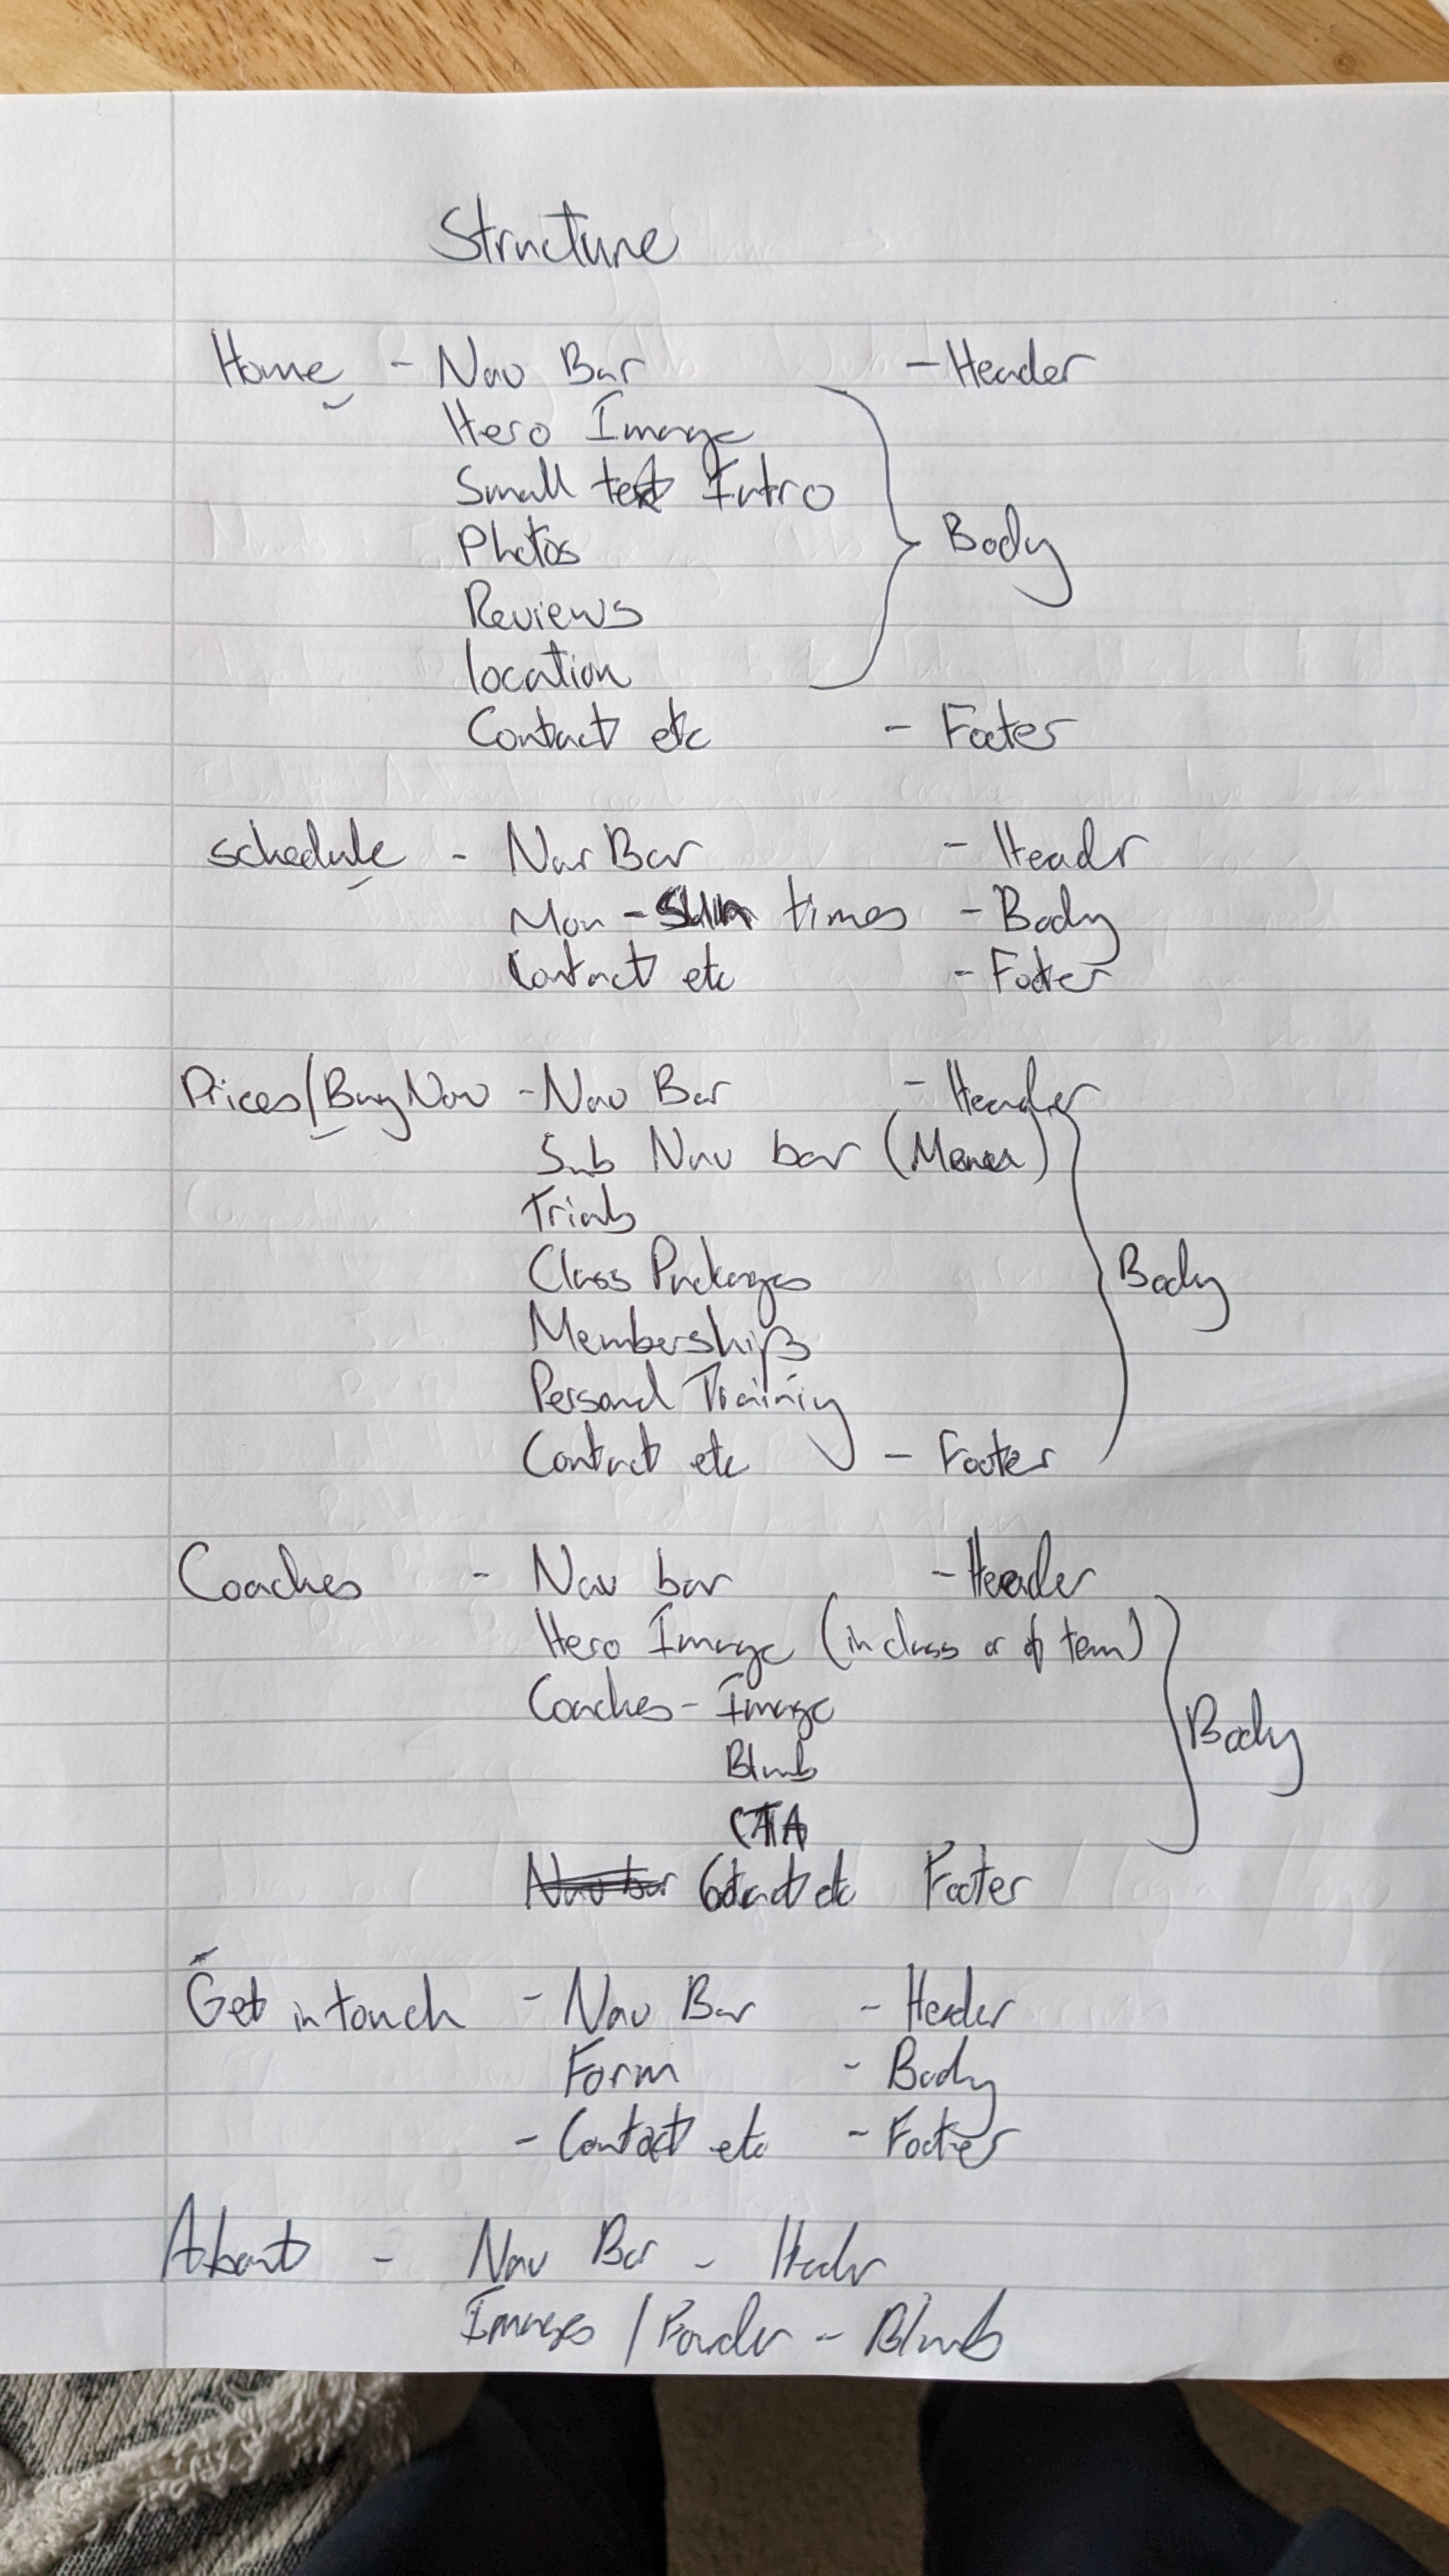 Structure
Home - Nav Bar - Header
Hero Image
Small text Intro
Photos
Body
Reviews
location
Contact etc - Footer
Schedule - Nav Bar - Header
Mon - Sun times - Body
Contact etc - Footer
Prices/Buy Now - Nav Bar - Header
Sub Nav bar (Menu)
Trials
Class Packages
Body
Memberships
Personal Training
Contact etc - Footer
Coaches - Nav bar - Header
Hero Image (in class or of team)
Coaches - Image
Body
Blurb
CTA
Nav bar Contact etc Footer
Get in touch - Nav Bar - Header
Form - Body
- Contact etc - Footer
About - Nav Bar - Header
Images / Founder - Blurb